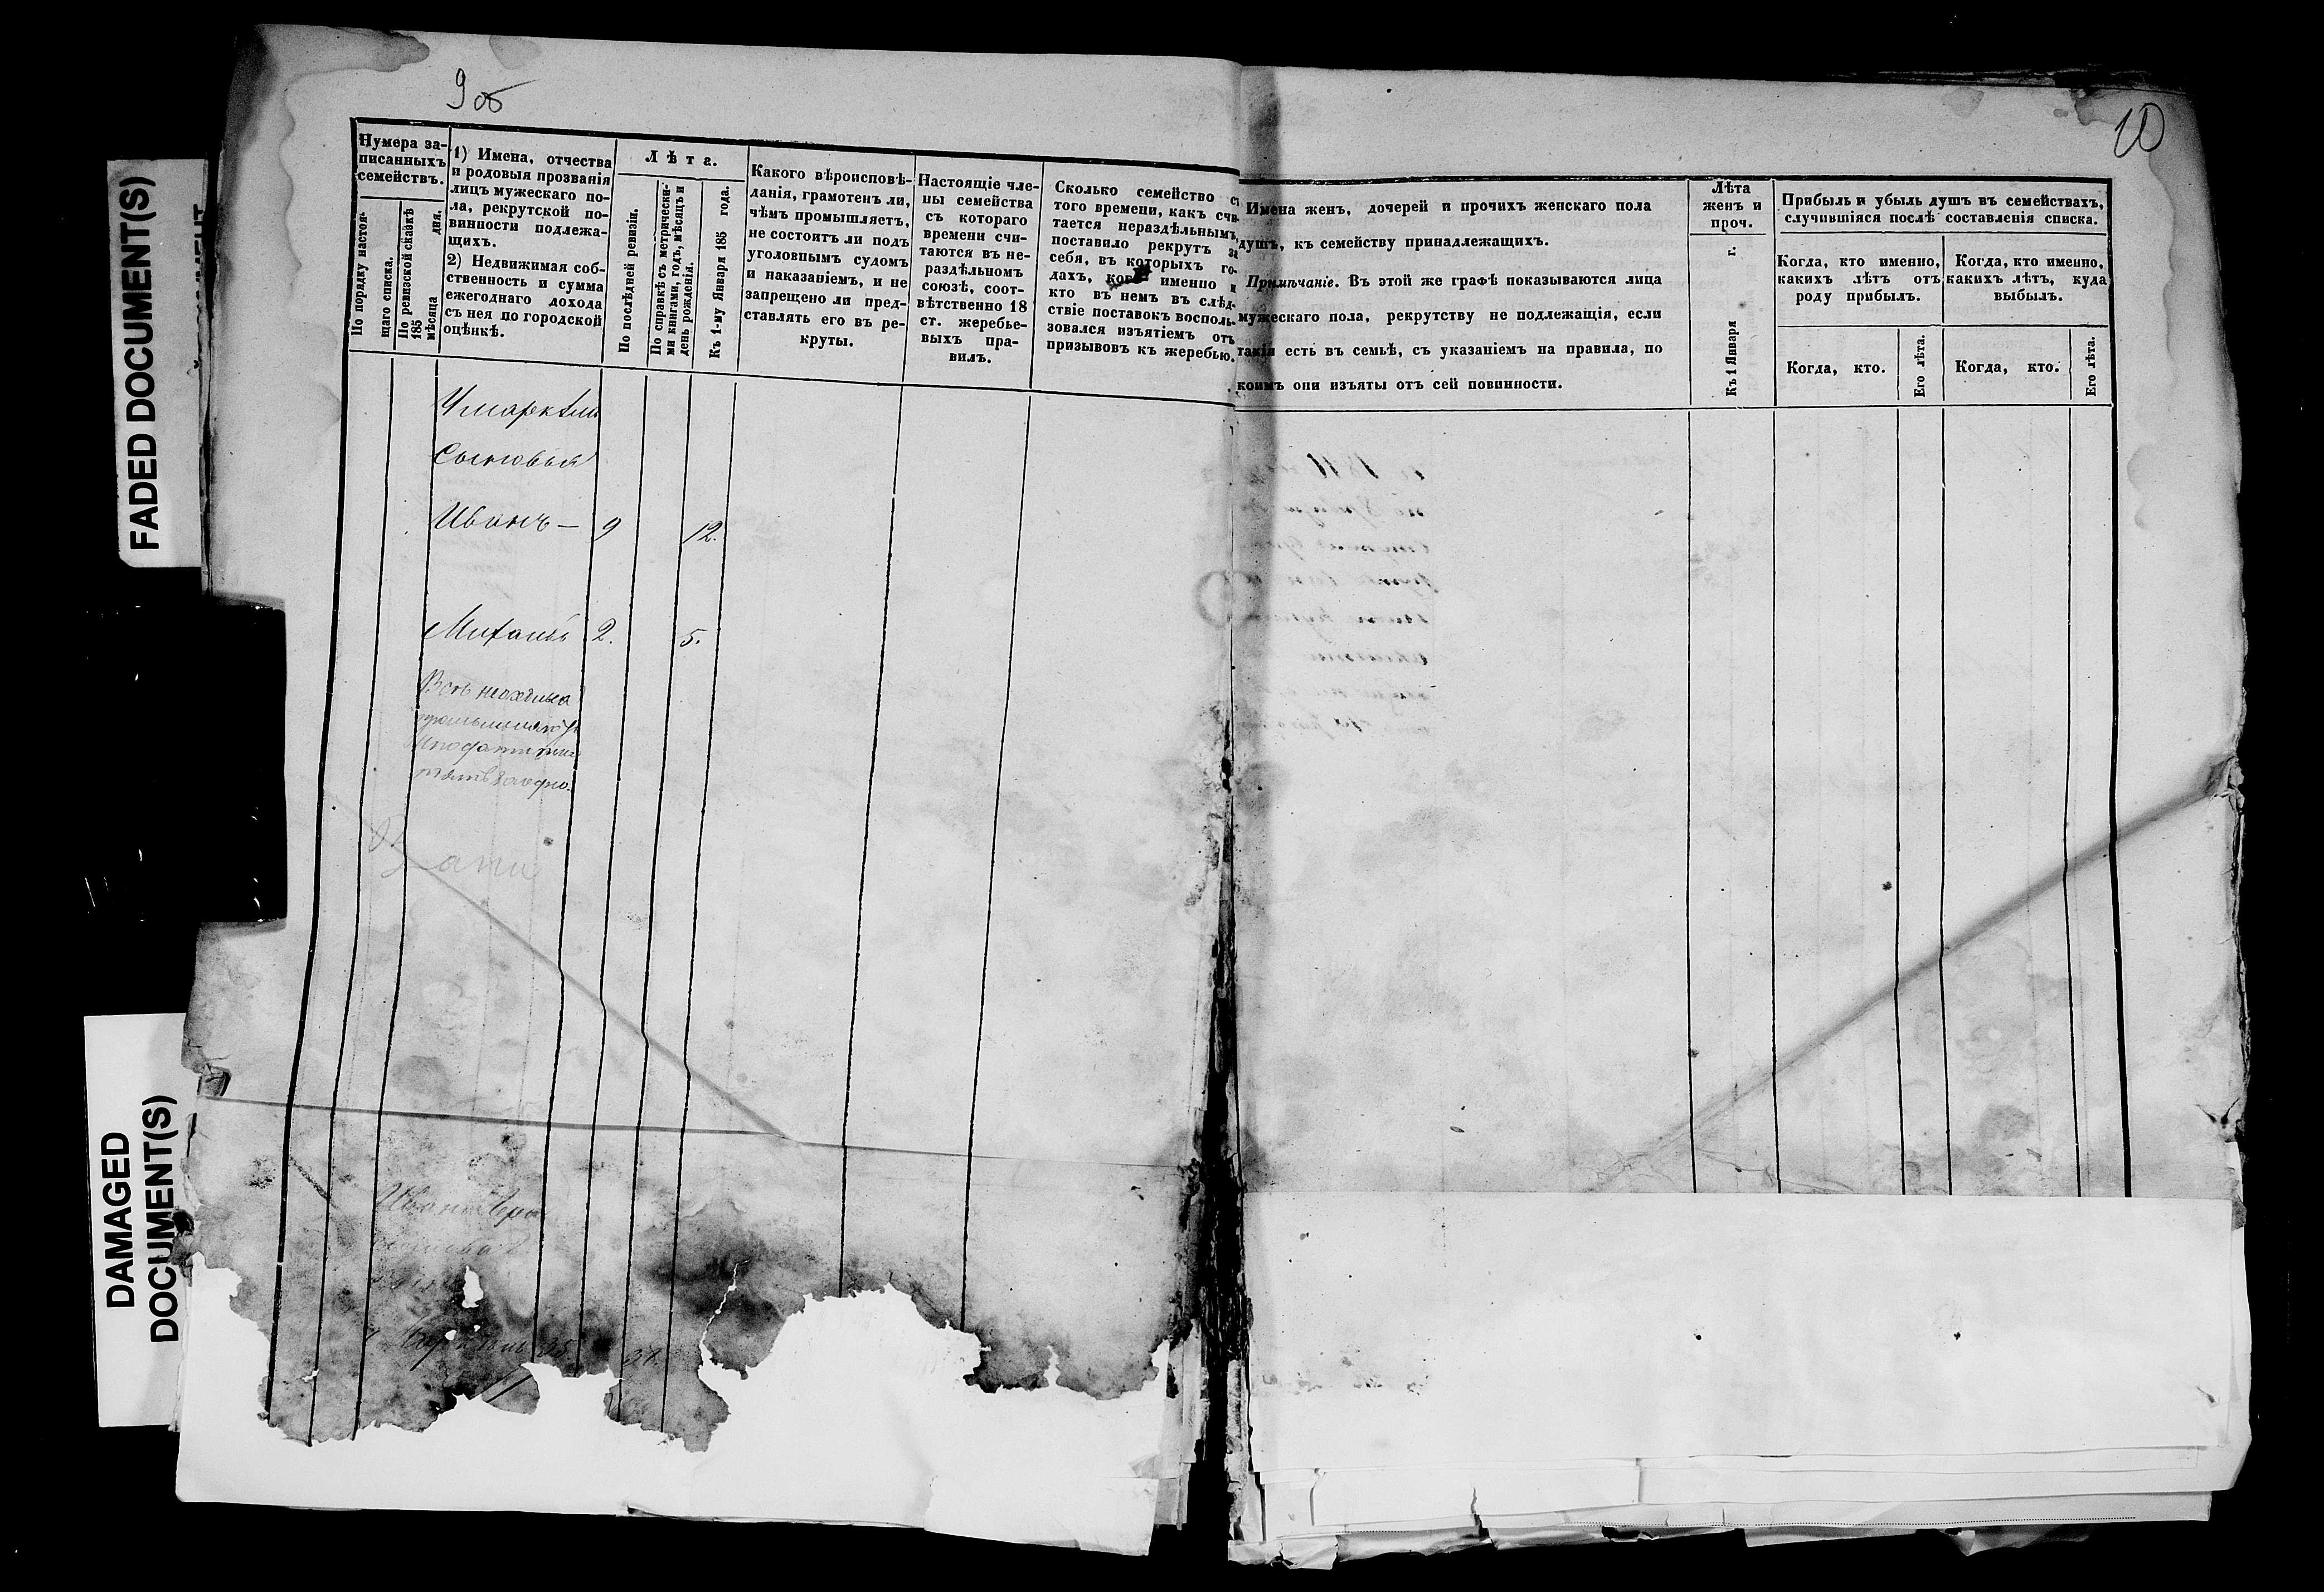 FADED DOCUMENT(S)
DAMAGED
DOCUMENT(S)
9 об
10
Нумера за-
писанныхъ
семействъ.
По порядку настоя-
щаго списка.
По ревизской сказкѣ
185
мѣсяца дня.
1) Имена, отчества
и родовыя прозванія
лицъ мужескаго по-
ла, рекрутской по-
винности подлежа-
щихъ.
2) Недвижимая соб-
ственность и сумма
ежегоднаго дохода
съ нея по городской
оцѣнкѣ.
Лѣта.
По послѣдней ревизіи.
По справкѣ съ метрически-
ми книгами, годъ, мѣсяцъ и
день рожденія.
Къ 1-му Января 185 года.
Какого вѣроисповѣ-
данія, грамотенъ ли,
чѣмъ промышляетъ,
не состоитъ ли подъ
уголовнымъ судомъ
и наказаніемъ, и не
запрещено ли пред-
ставлять его въ ре-
круты.
Настоящіе чле-
ны семейства
съ котораго
времени счи-
таются въ не-
раздѣльномъ
союзѣ, соот-
вѣтственно 18
ст. жеребье-
выхъ пра-
вилъ.
Сколько семейство съ
того времени, какъ счи-
тается нераздѣльнымъ,
поставило рекрутъ за
себя, въ которыхъ го-
дахъ, когда именно и
кто въ немъ въ слѣд-
ствіе поставокъ восполь-
зовался изъятіемъ отъ
призывовъ къ жеребью.
Имена женъ, дочерей и прочихъ женскаго пола
душъ, къ семейству принадлежащихъ.
Примѣчаніе. Въ этой же графѣ показываются лица
мужескаго пола, рекрутству не подлежащія, если
такія есть въ семьѣ, съ указаніемъ на правила, по
коимъ они изъяты отъ сей повинности.
Лѣта
женъ и
проч.
Къ 1 Января г.
Прибыль и убыль душъ въ семействахъ,
случившіяся послѣ составленія списка.
Когда, кто именно,
какихъ лѣтъ отъ
роду прибылъ.
Когда, кто именно,
какихъ лѣтъ, куда
выбылъ.
Когда, кто.
Его лѣта.
Когда, кто.
Его лѣта.
Сыновья
Иванъ — 9 12.
Михаилъ 2. 5.
Иван
35. 38.